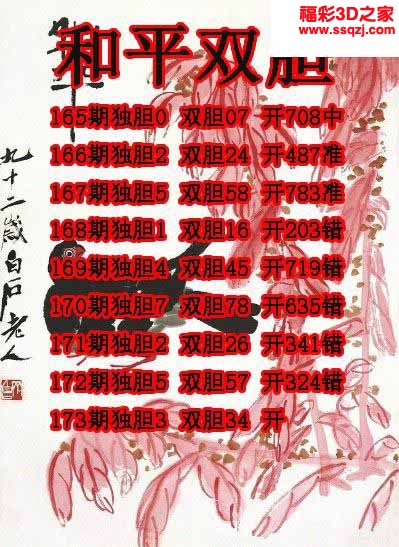 福彩3D之家
www.ssqzj.com
和平双胆
165期独胆0 双胆07 开708中
166期独胆2 双胆24 开487准
167期独胆5 双胆58 开783准
168期独胆1 双胆16 开203错
169期独胆4 双胆45 开719错
170期独胆7 双胆78 开635错
171期独胆2 双胆26 开341错
172期独胆5 双胆57 开324错
173期独胆3 双胆34 开
九十二岁白石老人